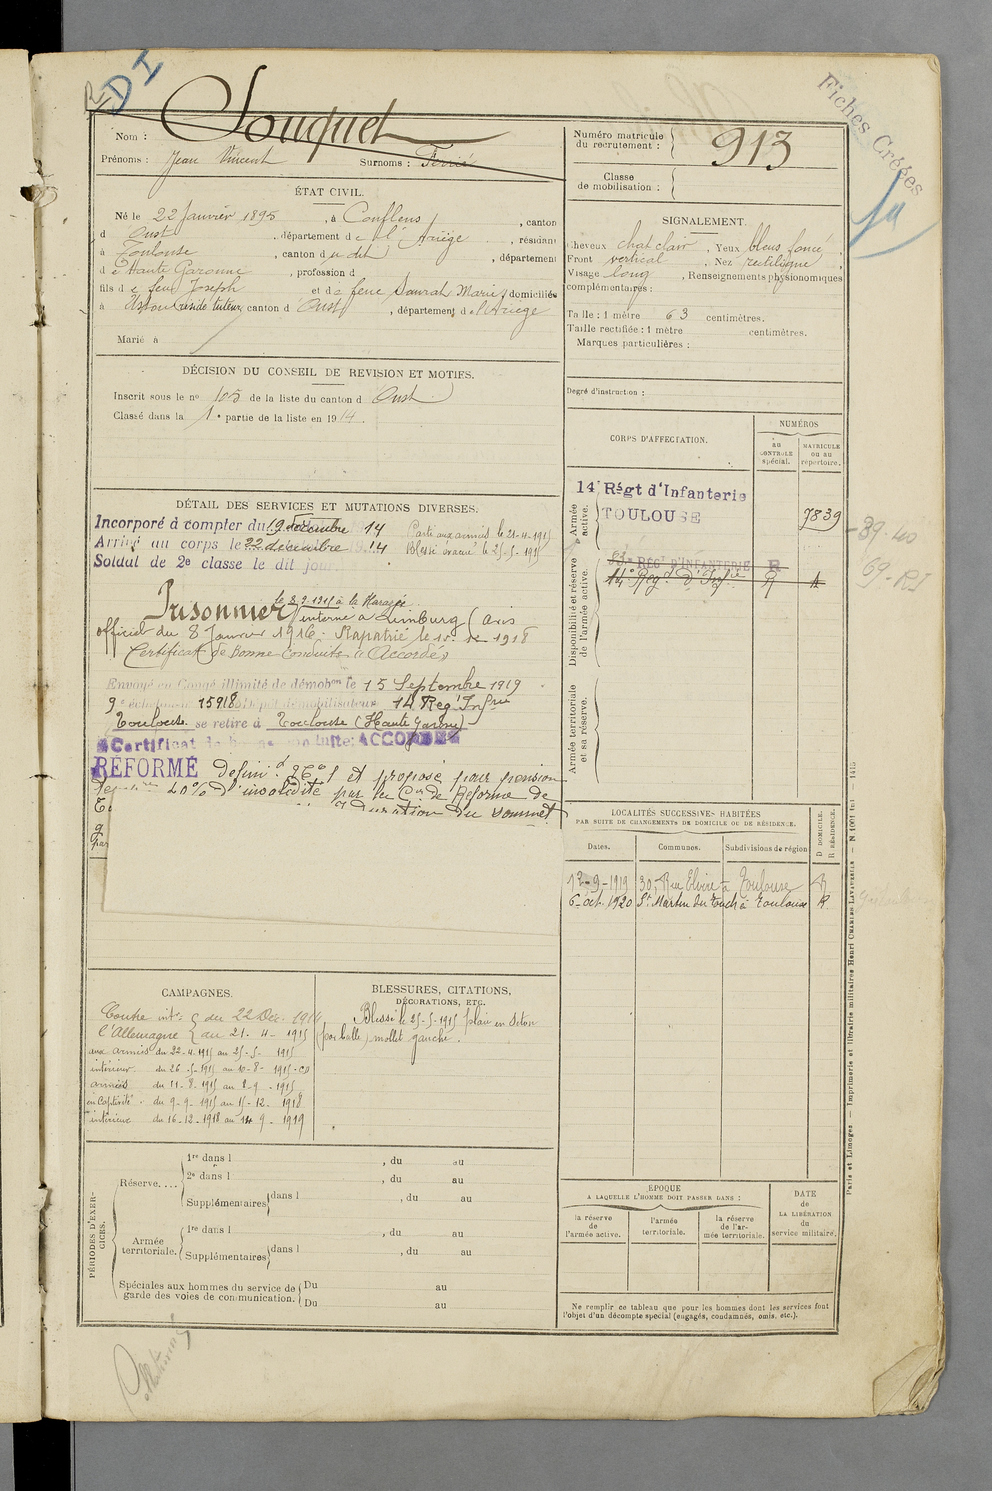 R. DI
Souquet
Nom :
Prénoms : Jean Vincent Surnoms : Ferrié
Numéro matricule du recrutement : 913
Classe de mobilisation :
Fiches Créées
ÉTAT CIVIL.
Né le 22 Janvier 1895, à Couflens, canton
d'Oust, département de l'Ariège, résidant
à Toulouse, canton du dit, département
de Haute Garonne, profession d
fils de feu Joseph et de feue Saurat Marie, domiciliés
à canton d'Oust, département de l'Ariège
Marié à
SIGNALEMENT.
Cheveux chat clair, Yeux bleus foncé
Front vertical, Nez rectiligne
Visage long, Renseignements physionomiques
complémentaires :
Taille : 1 mètre 63 centimètres.
Taille rectifiée : 1 mètre centimètres.
Marques particulières :
Degré d'instruction :
DÉCISION DU CONSEIL DE REVISION ET MOTIFS.
Inscrit sous le nº 105 de la liste du canton d'Oust
Classé dans la 1e partie de la liste en 1914.
DÉTAIL DES SERVICES ET MUTATIONS DIVERSES.
Incorporé à compter du 19 décembre 1914
Arrivé au corps le 22 décembre 1914
Soldat de 2e classe le dit jour.
Parti aux armées le 21-4-1915
Blessé évacué le 25-5-1915
Prisonnier le 8.9.1915 à la Harazée
interné à Limburg (avis
officiel du 8 Janvier 1916. Rapatrié le 15. 12 1918
Certificat de Bonne Conduite "Accordé"
Envoyé en Congé illimité de démobon le 15 Septembre 1919
9e échelon nº 15918 Dépôt démobilisateur 14 Reg. Infrie
Toulouse se retire à Toulouse (Haute Garonne)
Certificat de bonne conduite: ACCORDÉ
RÉFORMÉ Définif et proposé pour pension
40% d'invalidité par la Con de Réforme de
du sommet
CORPS D'AFFECTATION.
NUMÉROS
au CONTROLE spécial.
MATRICULE ou au répertoire.
Armée active.
14e Régt d'Infanterie
TOULOUSE
7839
Disponibilité et réserve de l'armée active.
RÉGT D'INFANTERIE R
14e Regt d'Infie R
Armée territoriale et sa réserve.
39-40
69-RI
LOCALITÉS SUCCESSIVES HABITÉES
PAR SUITE DE CHANGEMENTS DE DOMICILE OU DE RÉSIDENCE.
D DOMICILE. R RÉSIDENCE.
Dates. Communes. Subdivisions de région
12-9-1919 30, Rue Elvire à Toulouse R
6-oct. 1920 St Martin du Touch à Toulouse R.
CAMPAGNES.
Contre intr du 22 Déc. 1914
l'Allemagne au 21-4-1915
aux armées du 22-4-1915 au 25-5-1915
intérieur du 26-5-1915 au 10-8-1915
armées du 11-8-1915 au 8-9-1915
en Captivité du 9-9-1915 au 15-12-1918
intérieur du 16-12-1918 au 14-9-1919
BLESSURES, CITATIONS,
DÉCORATIONS, ETC.
Blessé le 25-5-1915 plaie en séton
(par balle) mollet gauche.
PÉRIODES D'EXERCICES.
Réserve....
1re dans l , du au
2e dans l , du au
Supplémentaires dans l , du au
Armée territoriale.
1re dans l , du au
Supplémentaires dans l , du au
Spéciales aux hommes du service de garde des voies de communication.
Du au
Du au
ÉPOQUE
A LAQUELLE L'HOMME DOIT PASSER DANS :
la réserve de l'armée active.
l'armée territoriale.
la réserve de l'armée territoriale.
DATE DE LA LIBÉRATION du service militaire.
Ne remplir ce tableau que pour les hommes dont les services font
l'objet d'un décompte spécial (engagés, condamnés, omis, etc.).
Paris et Limoges — Imprimerie et librairie militaires Henri CHARLES-LAVAUZELLE — N. 1001 — 1415